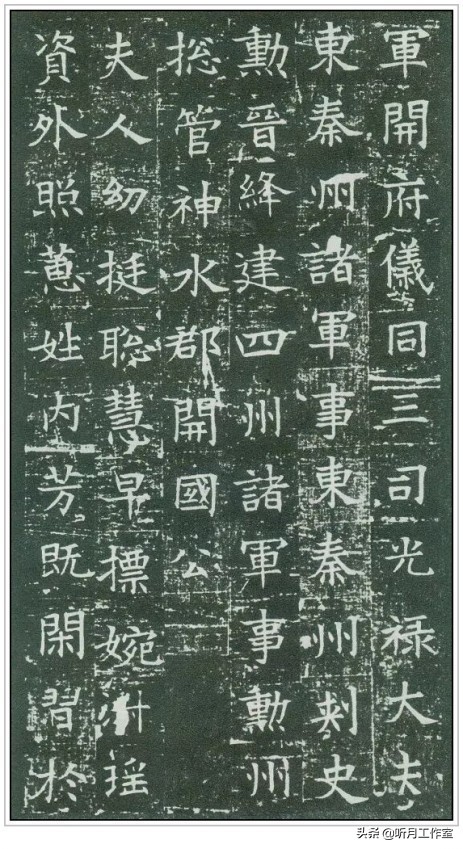 軍開府儀同三司光禄大夫
東秦州諸軍事東秦州刺史
勳晉絳建四州諸軍事勳州
捴管神水郡開國公
夫人幼挺聡慧早摽婉淑瑶
資外照蕙姓内芳既閑習於
头条 @听月工作室